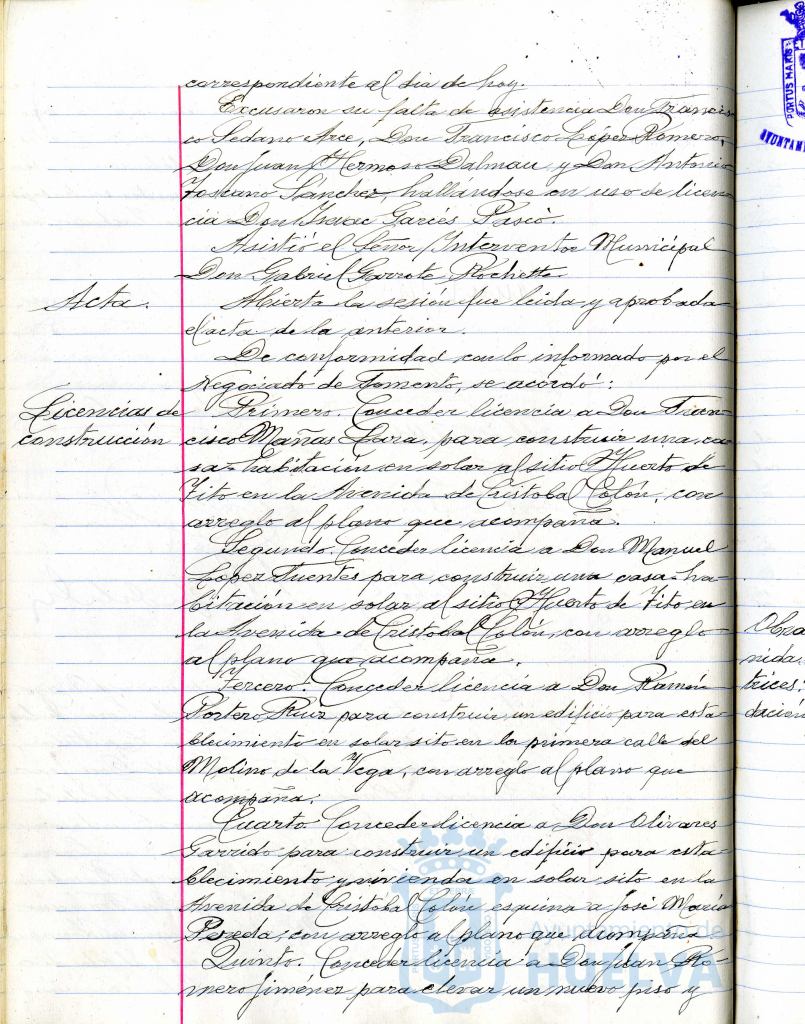 correspondiente al dia de hoy.
Excusaron su falta de asistencia Don Francis-
co Sedano Arce, Don Francisco López Romero,
Don Juan Hermoso Dalmau y Don Antonio
Toscano Sánchez, hallandose en uso de licen-
cia Don Garcés Pascó.
Asistió el Señor Interventor Municipal
Don Gabriel Garrote
Acta.
Abierta la sesión fue leida y aprobada
el acta de la anterior.
De conformidad con lo informado por el
Negociado de Fomento, se acordó:
Licencias de
construcción
Primero. Conceder licencia a Don Fran-
cisco Mañas Lara, para construir una ca-
sa-habitación en solar al sitio Huerto de
Tito en la Avenida de Cristobal Colón, con
arreglo al plano que acompaña.
Segundo. Conceder licencia a Don Manuel
López Fuentes para construir una casa-ha-
bitación en solar al sitio Huerto de Tito en
la Avenida de Cristobal Colón, con arreglo
al plano que acompaña.
Tercero. Conceder licencia a Don Ramón
Portero Ruiz para construir un edificio para esta-
blecimiento en solar sito en la primera calle del
Molino de la Vega, con arreglo al plano que
acompaña.
Cuarto. Conceder licencia a Don Olivares
Garrido para construir un edificio para esta-
blecimiento y vivienda en solar sito en la
Avenida de Cristobal Colón esquina a José María
Pereda, con arreglo al plano que acompaña
Quinto. Conceder licencia a Don Juan Ro-
mero Jiménez para elevar un nuevo piso y
Ayuntamiento de
HUELVA
PORTUS MARIS
AYUNTAM
Obra
nida
trices:
dación